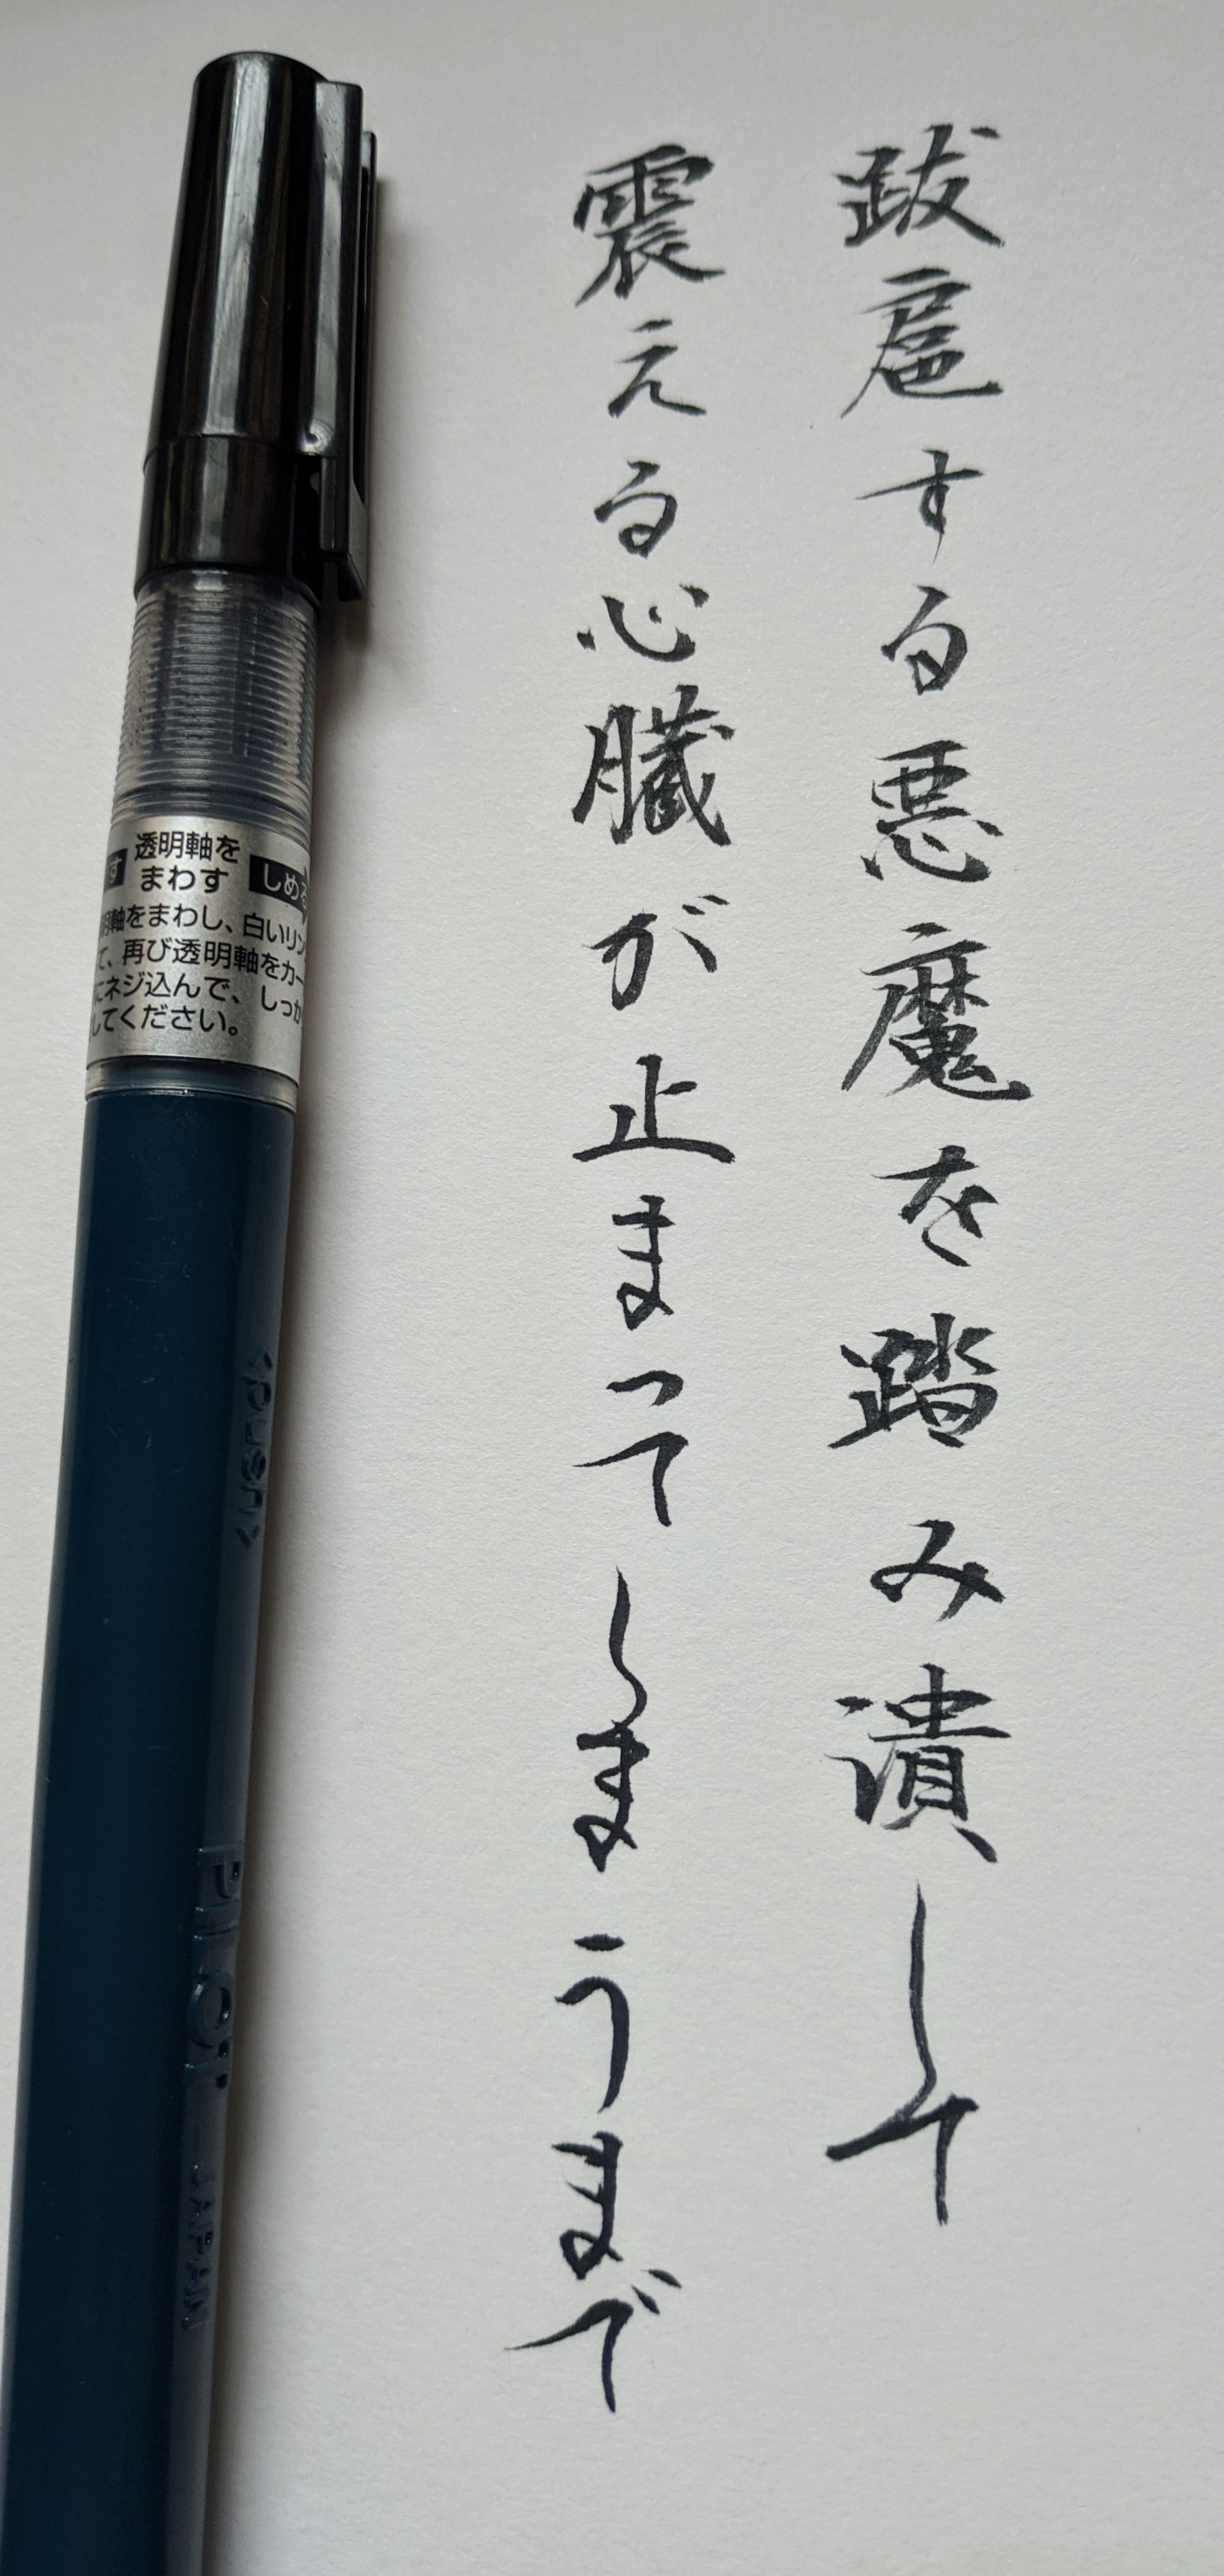 跋扈する悪魔を踏み潰して
震える心臓が止まってしまうまで
透明軸を
まわす
す
しめる
明軸をまわし、白いリン
て、再び透明軸をカー
にネジ込んで、しっか
してください。
<PUSH>
PILOT JAPAN